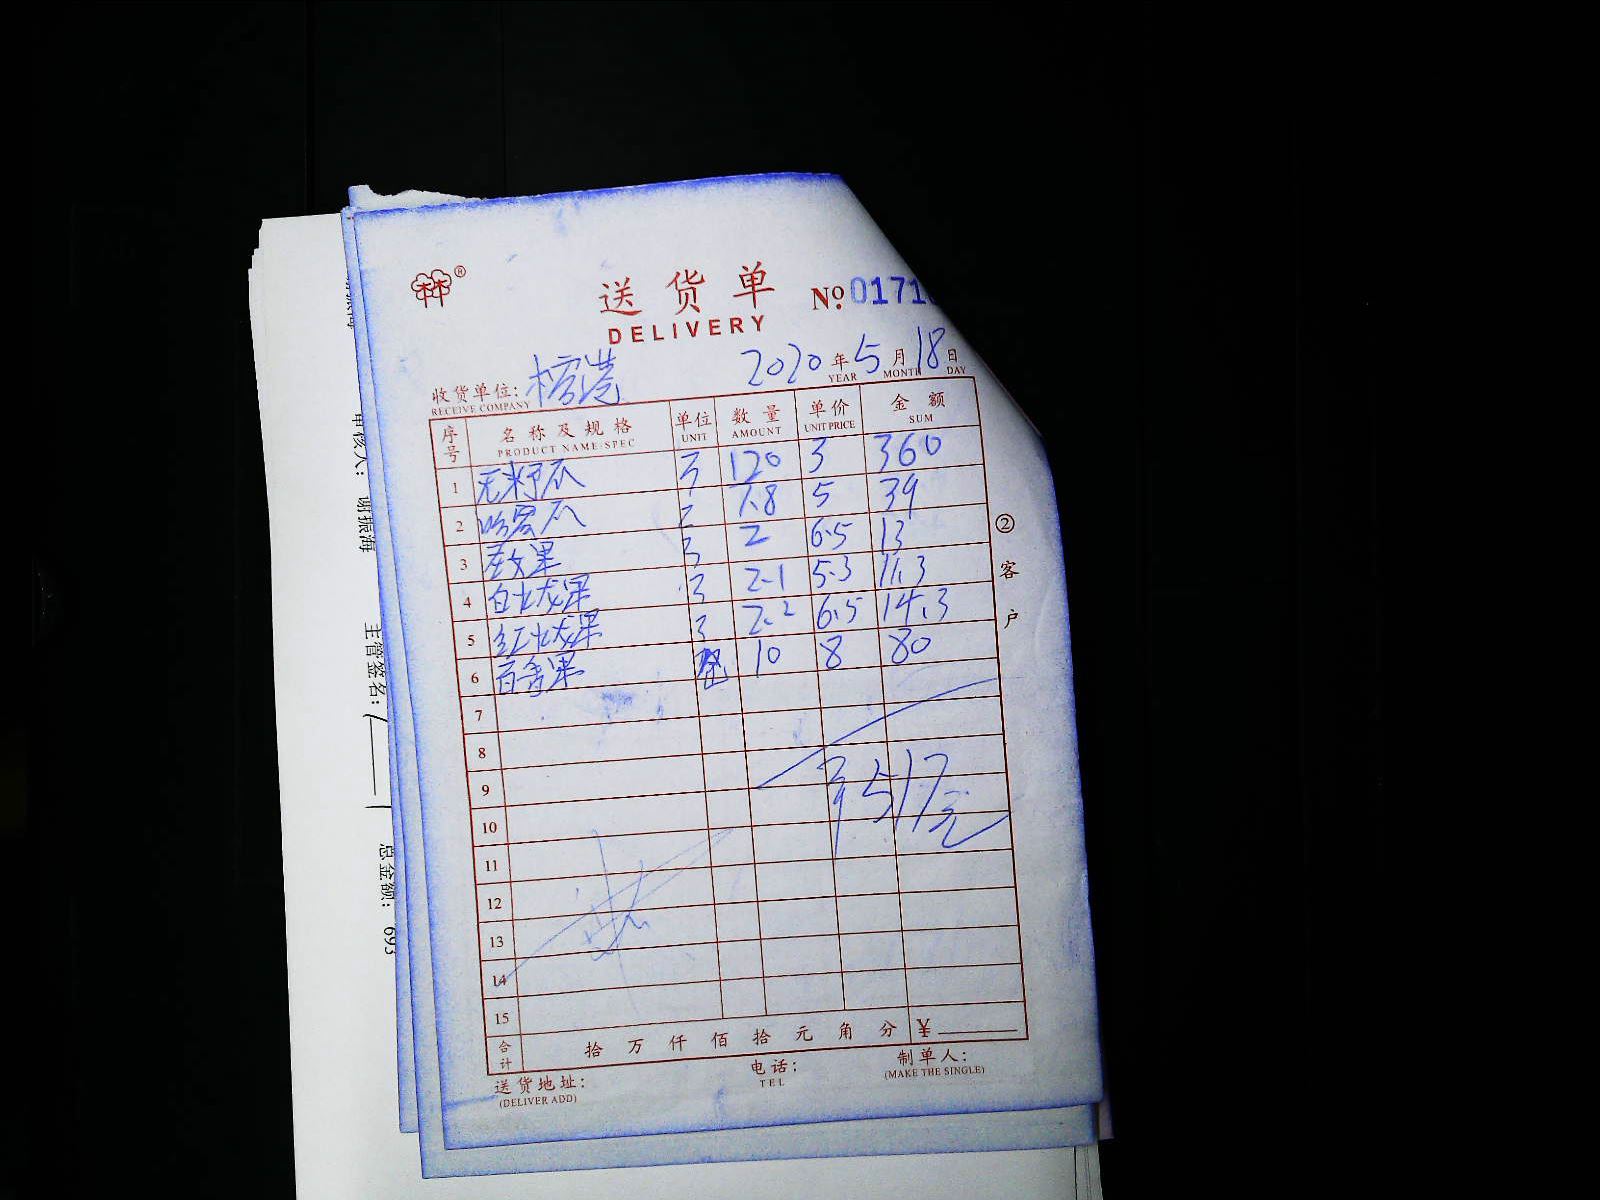 送货单
DELIVERY
№ 0171
2020年5月18日
YEAR MONTH DAY
收货单位：
RECEIVE COMPANY
序号 名称及规格 单位 数量 单价 金额
PRODUCT NAME SPEC UNIT AMOUNT UNIT PRICE SUM
1 无籽瓜 120 3 360
2 哈密瓜 7.8 5 39
3 果 2 6.5 13
4 白火龙果 2.1 5.3 11.3
5 红火龙果 2.2 6.5 14.3
6 百香果 10 8 80
7
8
9
517元
10
11
12
13
14
15
合计 拾 万 仟 佰 拾 元 角 分 ¥
送货地址： 电话： 制单人：
(DELIVER ADD) TEL (MAKE THE SINGLE)
②客户
审核人： 谢振海
主管签名：
总金额： 693